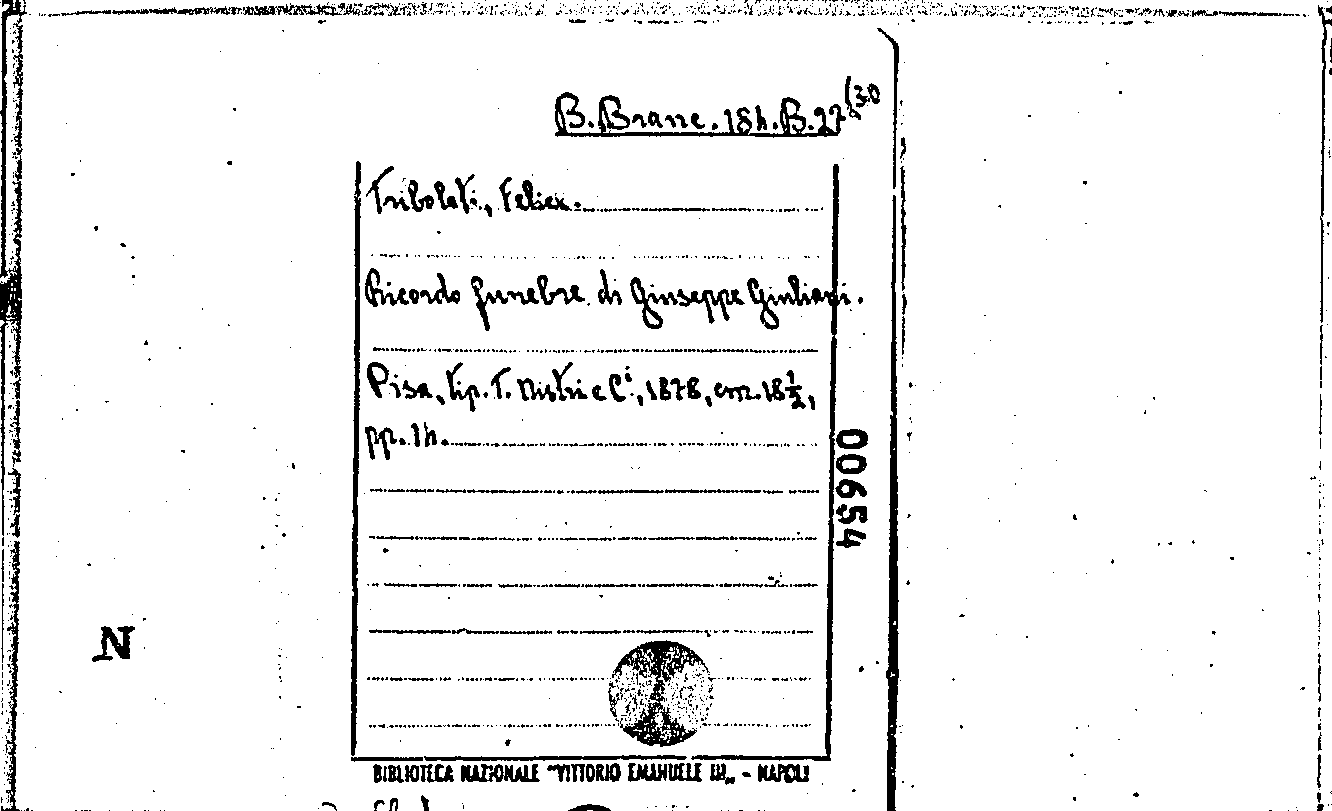 B. Branc. 184. B. 27 (30
Tribolati, Felice.
Ricordo funebre di Giuseppe Giuliani.
Pisa, tip. T. Nistri e C.i, 1878, cm. 18 ½,
pp. 14.
00654
N
BIBLIOTECA NAZIONALE "VITTORIO EMANUELE III„ - NAPOLI